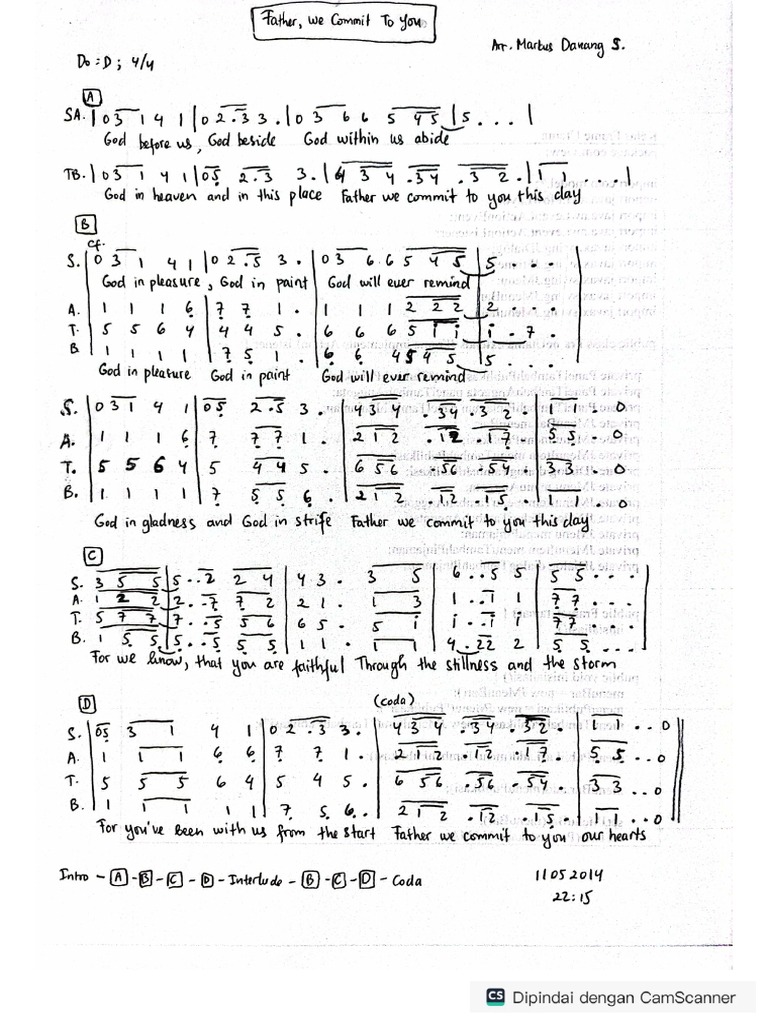 Father, we Commit To You
Arr. Markus Danang S.
Do = D ; 4/4
A
SA. | 0 3 1 4 1 | 0 2 . 3 3 . | 0 3 6 6 5 4 5 | 5 . . . |
God before us, God beside God within us abide
TB. | 0 3 1 4 1 | 0 5 2 . 3 3 . | 4 3 4 . 3 4 . 3 2 . | 1 1 . . . . |
God in heaven and in this place Father we commit to you this day
B
cf.
S. | 0 3 1 4 1 | 0 2 . 5 3 . | 0 3 6 6 5 4 5 | 5 . . . |
God in pleasure, God in paint God will ever remind
A. | 1 1 1 6 | 7 7 1 . | 1 1 1 2 2 2 | 2 . . .
T. | 5 5 6 4 | 4 4 5 . | 6 6 6 5 i i | i . 7 .
B | 1 1 1 1 | 7 5 1 . | 6 6 4 5 4 5 | 5 . . .
God in pleature God in paint God will ever remind
S. | 0 3 1 4 1 | 0 5 2 . 5 3 . | 4 3 4 . 3 4 . 3 2 . | 1 1 . 0
A. | 1 1 1 6 | 7 7 7 1 . | 2 1 2 . 1 2 . 1 7 . | 5 5 . 0
T. | 5 5 6 4 | 5 4 4 5 . | 6 5 6 . 5 6 . 5 4 . | 3 3 . 0
B. | 1 1 1 1 | 7 5 5 6 . | 2 1 2 . 1 2 . 1 5 . | 1 1 . 0
God in gladness and God in strife Father we commit to you this day
C
S. | 3 5 5 | 5 . . 2 2 4 | 4 3 . 3 5 | 6 . . 5 5 | 5 5 . . . |
A. | 1 2 2 | 2 . . 7 7 2 | 2 1 . 1 3 | 1 . . 1 1 | 7 7 . . .
T. | 5 7 7 | 7 . . 5 5 6 | 6 5 . 5 i | i . . i i | 7 7 . . .
B. | 1 5 5 | 5 . . 5 5 5 | 1 1 . 1 1 | 4 . 2 2 2 | 5 5 . . .
For we know, that you are faithful Through the stillness and the storm
D
(coda)
S. | 0 5 3 1 4 1 | 0 2 . 3 3 . | 4 3 4 . 3 4 . 3 2 . | 1 1 . . 0 ||
A. | 1 1 1 6 6 | 7 7 1 . | 2 1 2 . 1 2 . 1 7 . | 5 5 . . 0
T. | 5 5 5 6 4 | 5 4 5 . | 6 5 6 . 5 6 . 5 4 . | 3 3 . . 0
B. | 1 1 1 1 1 | 7 5 6 . . | 2 1 2 . 1 2 . 1 5 . | 1 1 . . 0
For you've been with us from the start Father we commit to you our hearts
Intro - A - B - C - D - Interlude - B - C - D - Coda
11052014
22:15
CS Dipindai dengan CamScanner